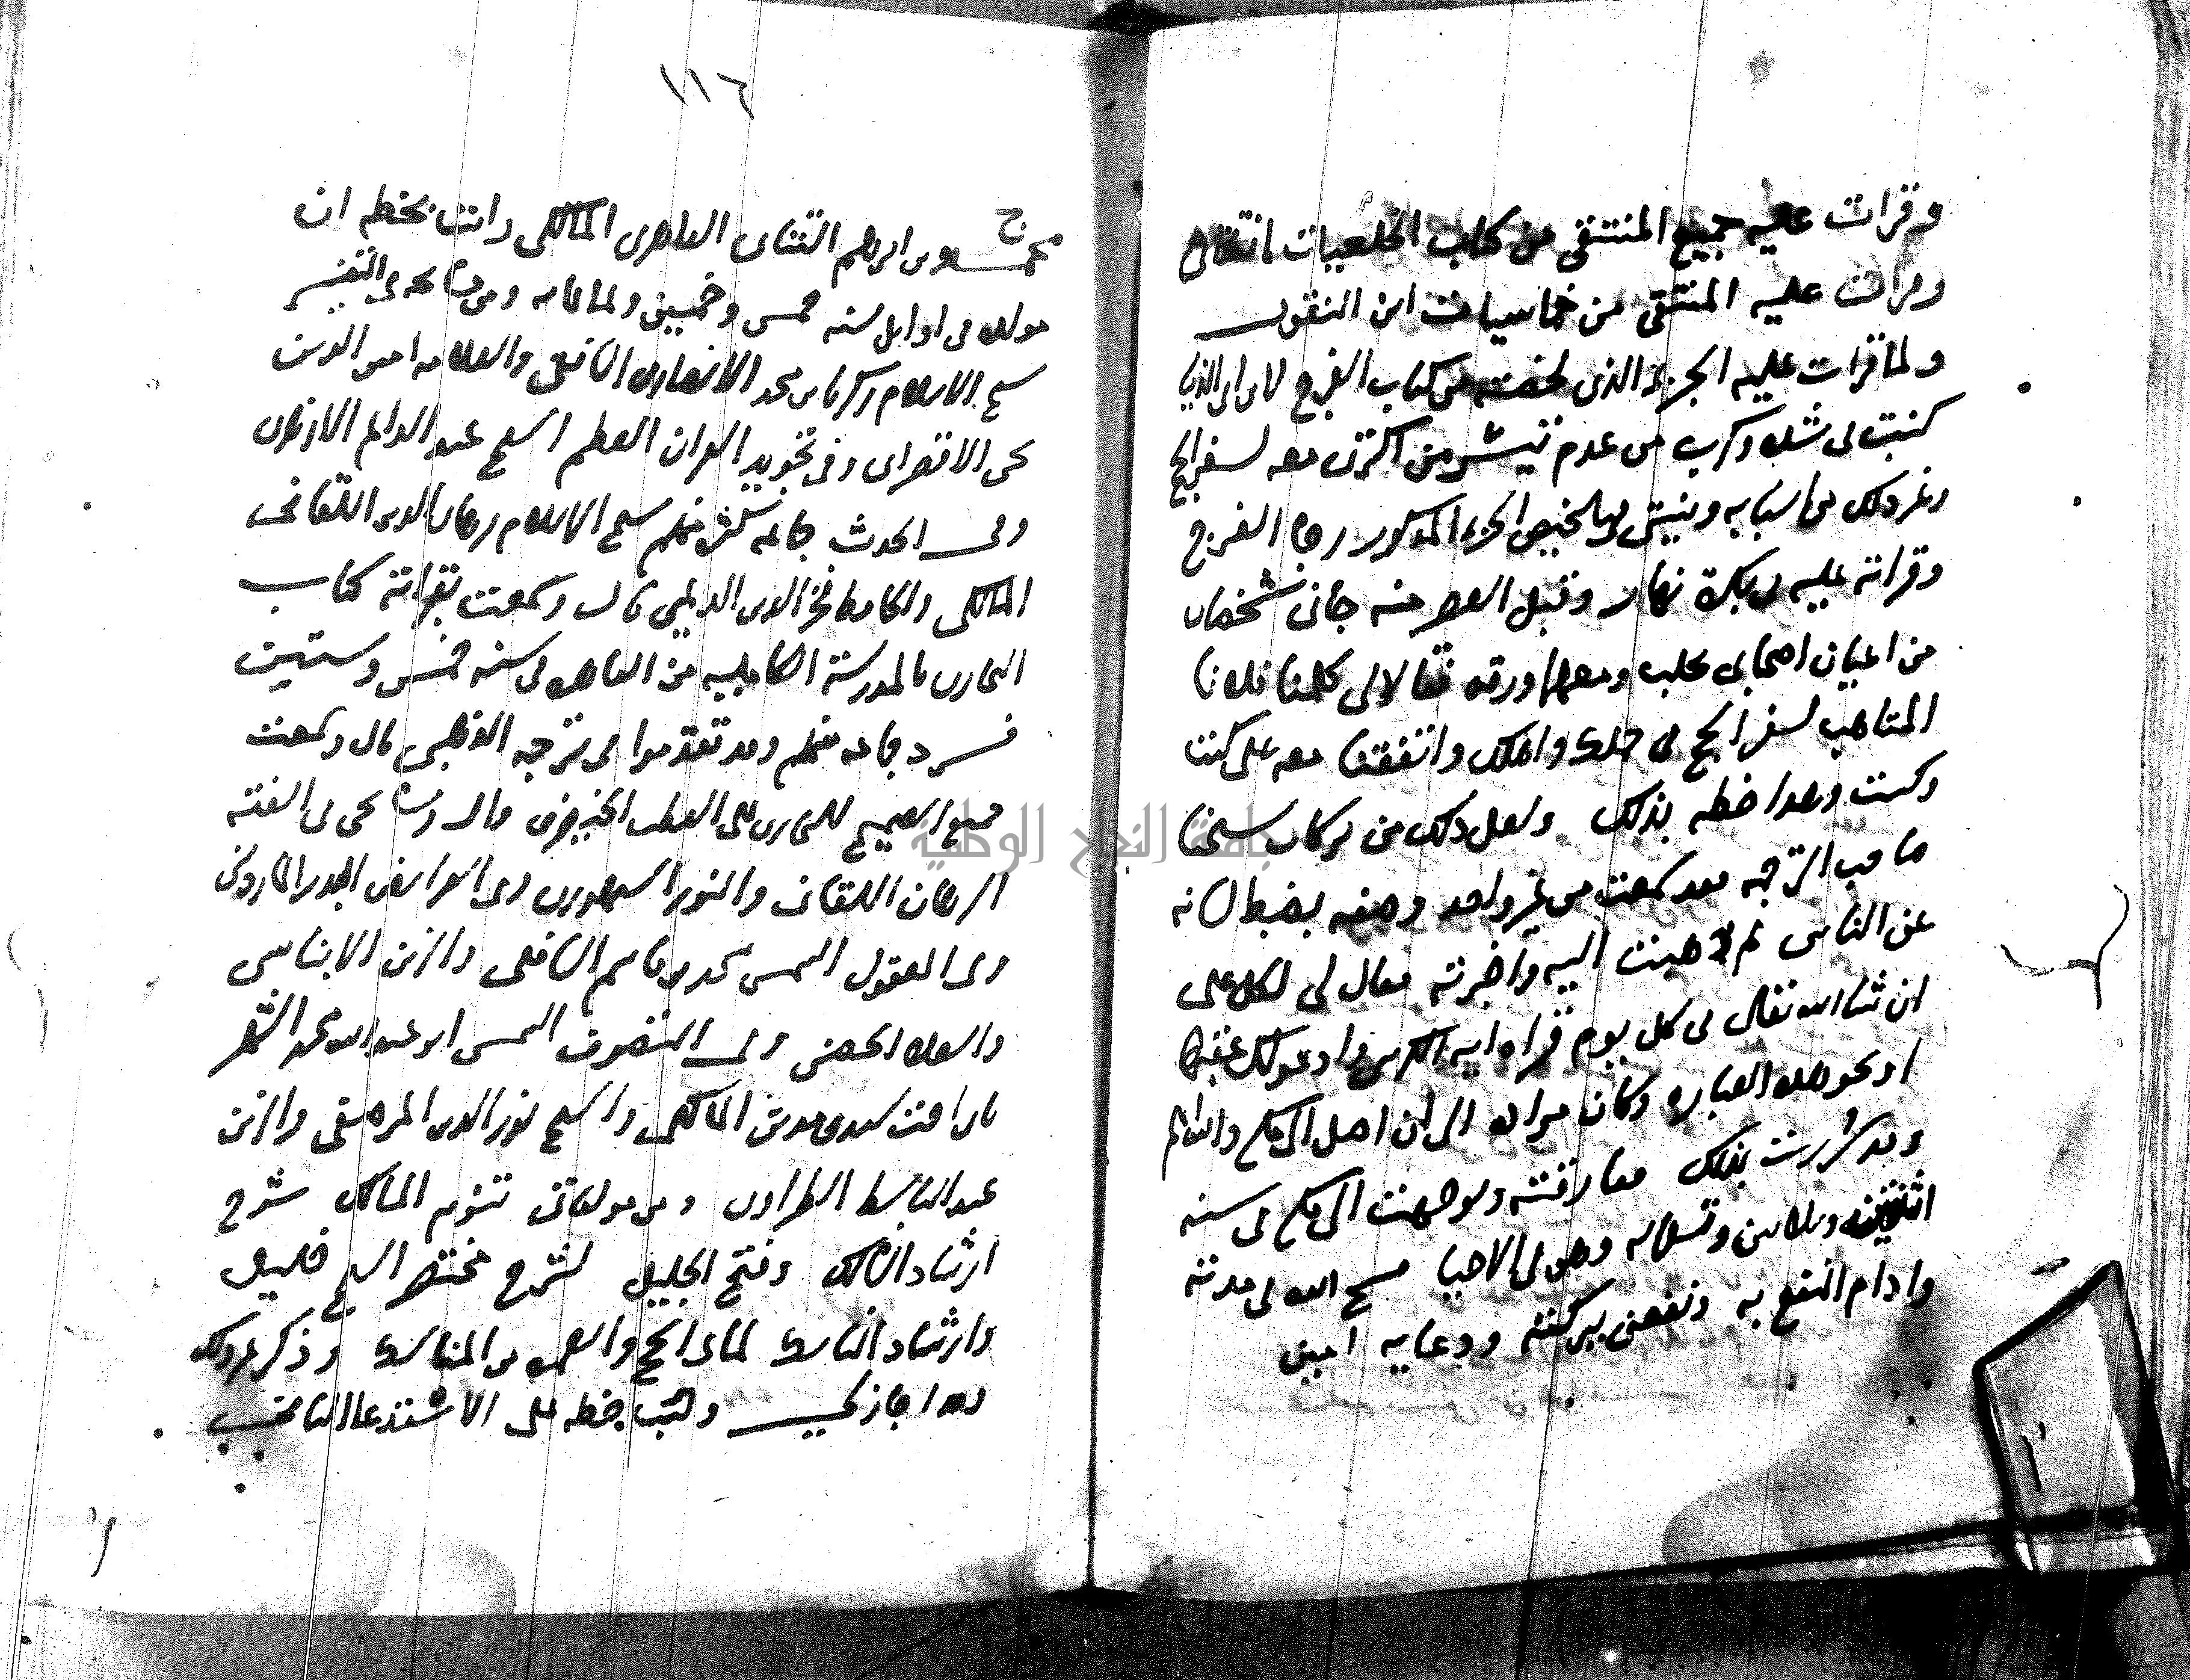 وقرات عليه جميع المنتقى من كتاب الخلعيات انتقائى
وقرات عليه المنتقى من خماسيات ابن النقور
ولما قرات عليه الجزء الذى لخصته من كتاب الفرج لابن ابى الدنيا
كنت فى شدة وكرب من عدم تيسر من اكترى معه لسفر الحج
وغير ذلك من اسبابه وبنيتى بتلخيص الجزء المذكور رجا الفرج
وقراته عليه فى بكرة نهار وقبل العصر منه جانى شخصان
من اعيان اصحابى بحلب ومعهما ورقه فقالا لى كلمنا فلانا
المتاهب لسفر الحج فى حملك واهلك واتفقنا معه على كيت
وكيت وهذا خطه بذلك ولعل ذلك من بركات شيخنا
صاحب الترجمه فقد سمعت من غير واحد وصفه بضبط لسانه
عن الناس ثم ذهبت اليه واخبرته فقال لى لك على
ان شا الله تعالى فى كل يوم قراه ايه الكرسى وادعو لك عقبها
او نحو هذه العباره وكان مراده الى ان اصل الى مكه والله اعلم
وقد سررت بذلك ففارقته وتوجهت الى مكه فى سنه
اثنتين وثلاثين وتسعمايه وهو فى الاحيا فسح الله فى مدته
وادام النفع به ونفعنى ببركته ودعايه امين
١١٦
ح
محمد بن ابراهيم التتائى القاهرى المالكى رايت بخطه ان
مولده فى اوايل سنه خمس وخمسين وثمانمايه ومن مشايخه فى التفسير
شيخ الاسلام زكريا بن محمد الانصارى الشافعى والعلامه امين الدين
يحيى الاقصراى وفى تجويد القران العظيم الشيخ عبد الدايم الازهرى
وفى الحديث جماعه كثر منهم شيخ الاسلام برهان الدين اللقانى
المالكى والحافظ فخر الدين الديمى قال وسمعت بقراته كتاب
البخارى بالمدرسة الكامليه من القاهره فى سنه خمس وستين
فسرد جماعه منهم وقد تقدموا فى ترجمه الذهبى قال وسمعت
جميع الصحيح للبخارى على القطب الخيضرى قال ومشايخى فى الفقه
البرهان اللقانى والنور السنهورى وفى الفرايض البدر الماردينى
وفى المعقول الشمس محمد بن قاسم الشافعى والزين الابناسى
والعلا الحصنى وفى التصوف الشمس ابو عبد الله محمد الشهير
بابن اخت سيدى مدين المالكى والشيخ نور الدين المرصفى والزين
عبد الباسط ومن مولفاته تنوير المسالك شرح
ارشاد السالك وفتح الجليل لشرح مختصر الشيخ خليل
وارشاد الناسك لما فى الحج والعمره من المناسك وذكر غير ذلك
وقد اجاز لى وكتب خطه على الاستدعا